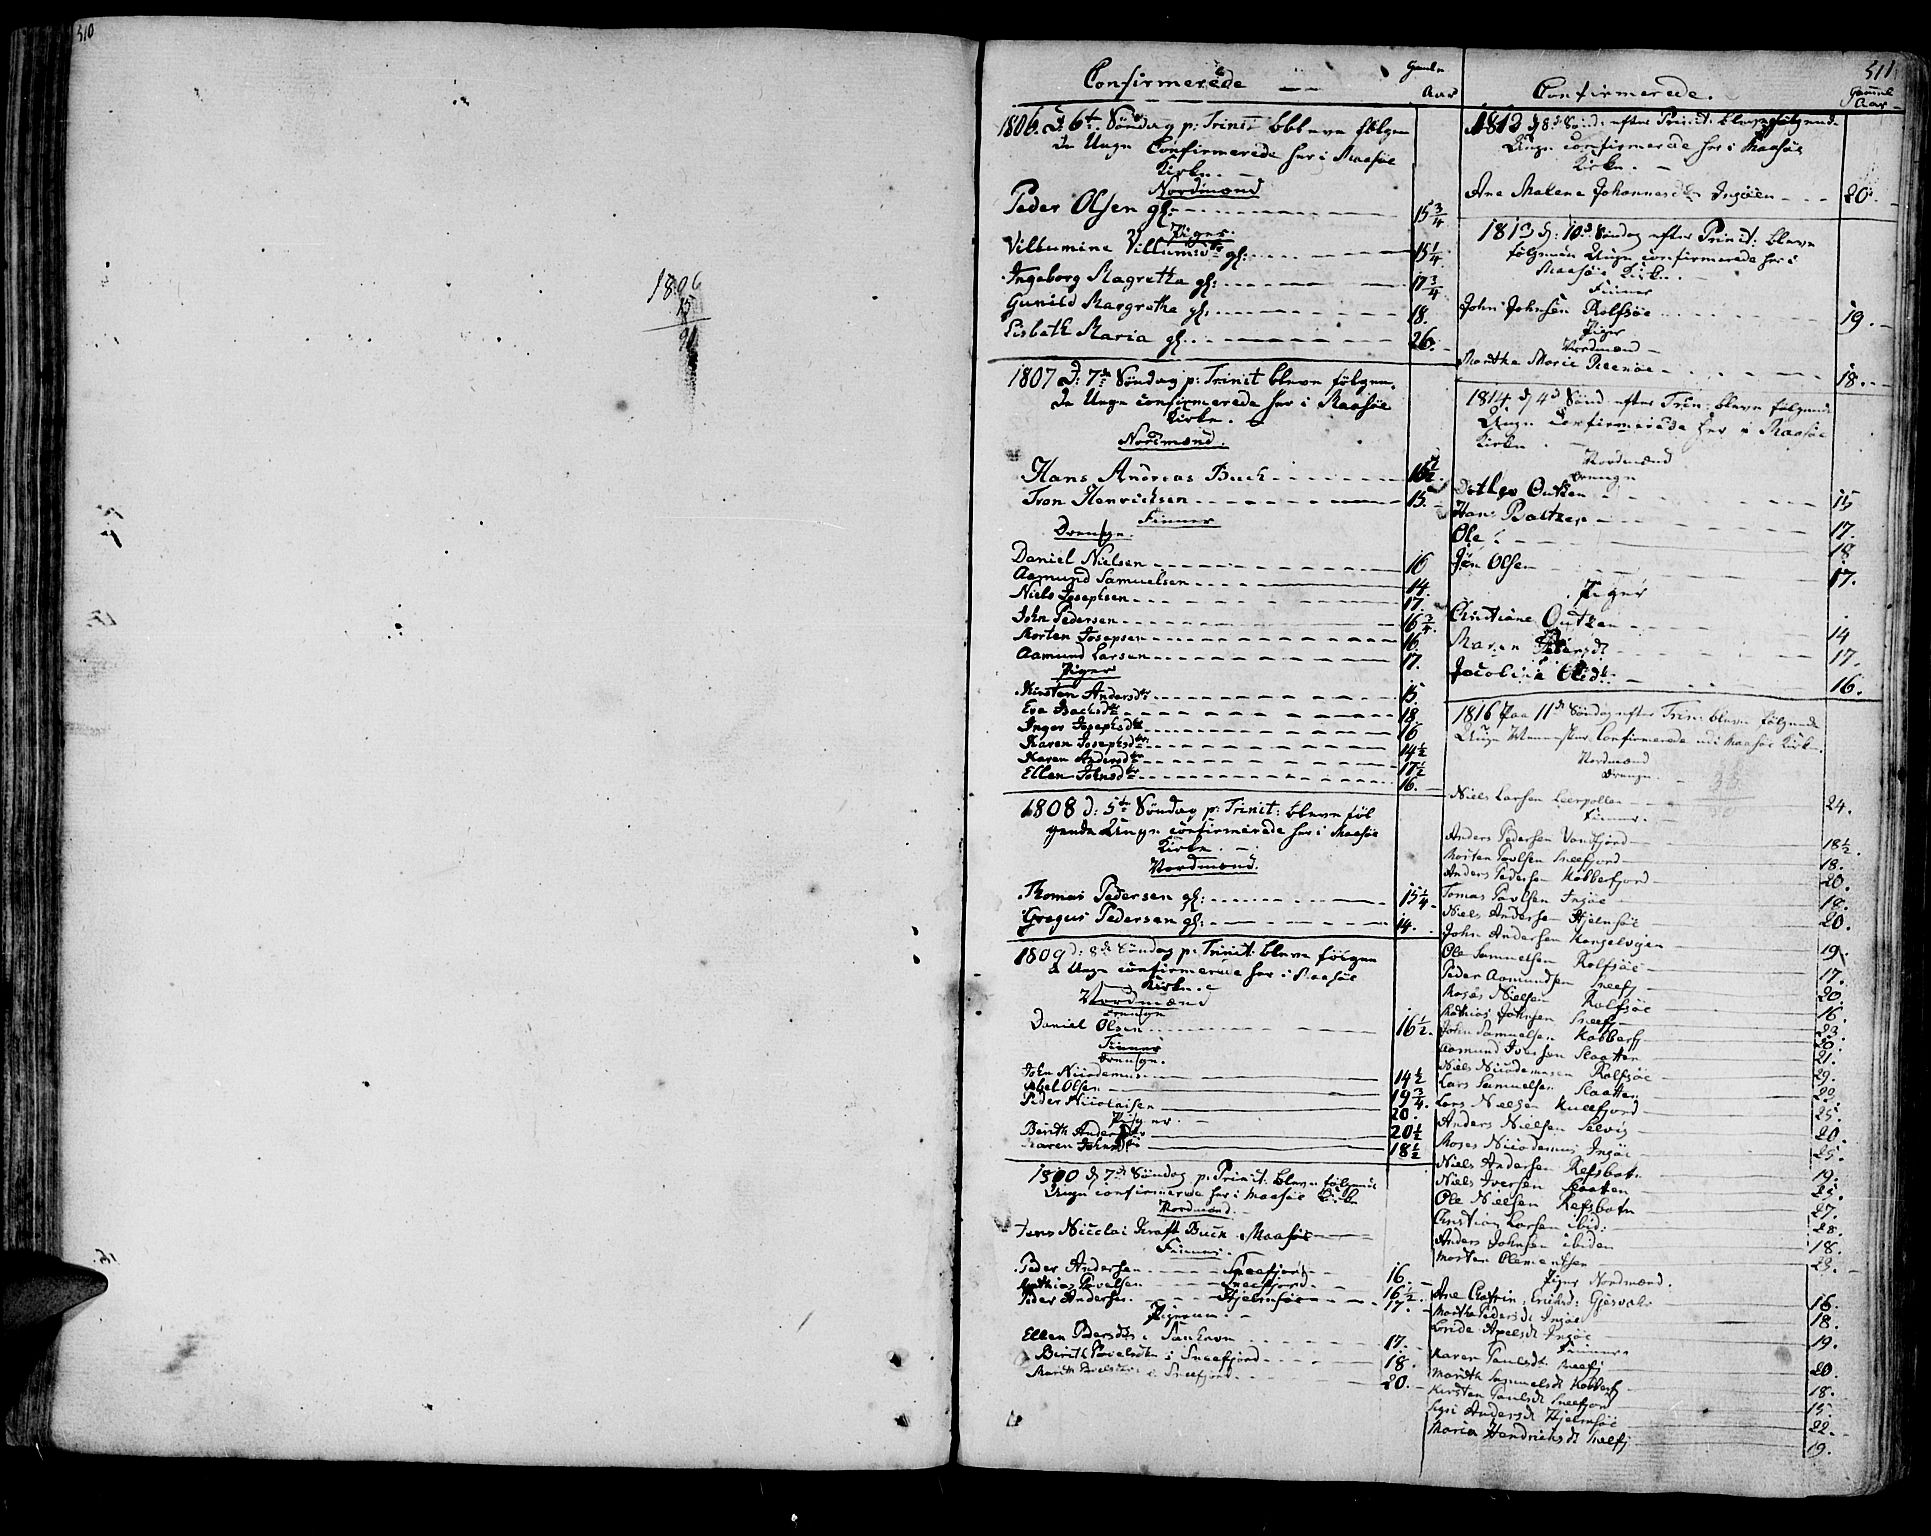 510
1806
15
91
511
Confirmerede
Gamle
Aar
1806. D: 6te Søndag p: Trinit bbleve følgen
de Unge Confirmerede her i Maasøe
Kirke.
Nordmænd
Peder Olsen gl: 15 3/4
Piger.
Villumine Villumsdr gl: 15 1/4
Ingeborg Magretha gl: 17 3/4
Gunild Margretha gl: 18.
Lisbeth Maria gl: 26.
1807 D: 7de Søndag p: Trinit bleve følgen
de Unge confirmerede her i Maasøe
Kirke.
Nordmænd.
Hans Andreas Buck 16 1/2
Tron Henrichsen 15.
Finner
Drenge.
Daniel Nielsen 16
Aamund Samuelsen 14
Niels Josephsen 17
John Pedersen 16 3/4
Morten Josepsen 16.
Aamund Larsen 17.
Piger
Kirsten Andersdtr 15
Eva Isachsdtr 18
Inger Josephsdtr 16
Karen Josephsdtr 14 1/2
Karen Andersdtr 17 1/2
Ellen Johnsdtr 16.
1808 d: 5te Søndag p: Trinit: bleve føl
gende Unge confirmerede her i Maasøe
Kirke.
Nordmænd.
Thomas Pedersen gl: 15 1/4
Gregus Pedersen gl: 14.
1809 d: 8de Søndag p: Trinit: bleve følgen
de Unge confirmerede her i Maasøe
Kirke.
Nordmænd
Drenge
Daniel Olsen 16 1/2
Finner
Drenge.
John Nicodemus 14 1/2
Abel Olsen 19 3/4
Peder Nicolaisen 20.
Piger.
Berith Andersdtr 20 1/2
Karen Johnsdtr 18 1/2
1810 d 7de Søndag p: Trinit. bleve følgende
Unge confirmerede her i Maasøe Kirke
Nordmænd.
Jens Nicolai Kraft Buck Maasøe
Finner.
Peder Andersen Sneefjord 16.
Mathias Povelsen Sneefjord 16 1/2
Peder Andersen Hjelmsøe 17.
Pigerne.
Ellen Pedersdtr i 17.
Berith Povelsdtr i Sneefjord 18.
Marith Povelsdtr i Sneefjord 20.
Confirmerede.
Gammel
Aar
1812 d 8de Sønd: efter Trinit: bleve følgende
Unge confirmerede her i Maasøe
Kirke.
Ane Malena Johannesdtr Ingøen 20.
1813 d: 10de Søndag efter Trinit: bleve
følgende Unge confirmerede her i
Maasøe Kirke.
Finner
John Johnsen Rolfsøe 19.
Piger
Nordmænd
Martha Marie Reenøe 18.
1814 d 4de Sønd. efter Trin: bleve følgende
Unge Confirmerede her i Maasøe
Kirke
Nordmænd
Drenge
Detlev Outzen 15
Hans Baltzer 17.
Ole 18
Jens Olsen 17.
Piger
Christiane Outzen 14
Maren Pedersdt 17.
Jacobine Olsdt 16.
1816 paa 11de Søndag efter Trin: bleve følgende
Unge Mennesker Confirmerede udi Maasøe Kirke.
Nordmænd
Drenge.
Niels Larsen Leerpollen 24.
Finner.
Anders Pedersen Vandfjord 18 1/2.
Morten Povlsen Sneefjord 18.
Anders Pedersen Kobberfjord 20.
Tomas Povlsen Ingøe 18.
Niels Andersen Hjelmsøe 20.
John Andersen 19.
Ole Samuelsen Rolfsøe 17.
Peder Aamundsen Sneefj 20.
Moses Nielsen Rolfsøe 16.
Mathias Johnsen Sneefj 23.
John Samuelsen Kobberfj 20.
Aamund Iversen Slaatten 21.
Niels Nicodemusen Rolfsøe 29.
Lars Samuelsen Slaatten 29.
Lars Nielsen Kulefjord 25.
Anders Nielsen Selvig 20.
Moses Nicodemus Ingøe 25.
Niels Andersen Refsbotn 19.
Niels Iversen Slaatten 23.
Ole Nielsen Refsbotn 27.
Christian Larsen ibid: 28.
Anders Johnsen ibiden 18.
Morten Clementsen 23.
Piger Nordmænd.
Ane Chatrin: Eriksd: Gjesvær 16.
Marthe Pedersdt Ingøe 18.
Apelsdt Ingøe 19.
Finner
Karen Paulsdt Sneefj 20.
Marith Samuelsdt Kobberfj 18.
Kirsten Paulsdt Sneefjord 15.
Sigri Andersdt Hjelmsøe 22.
Maria Hendrichsdt Sneefj 19.